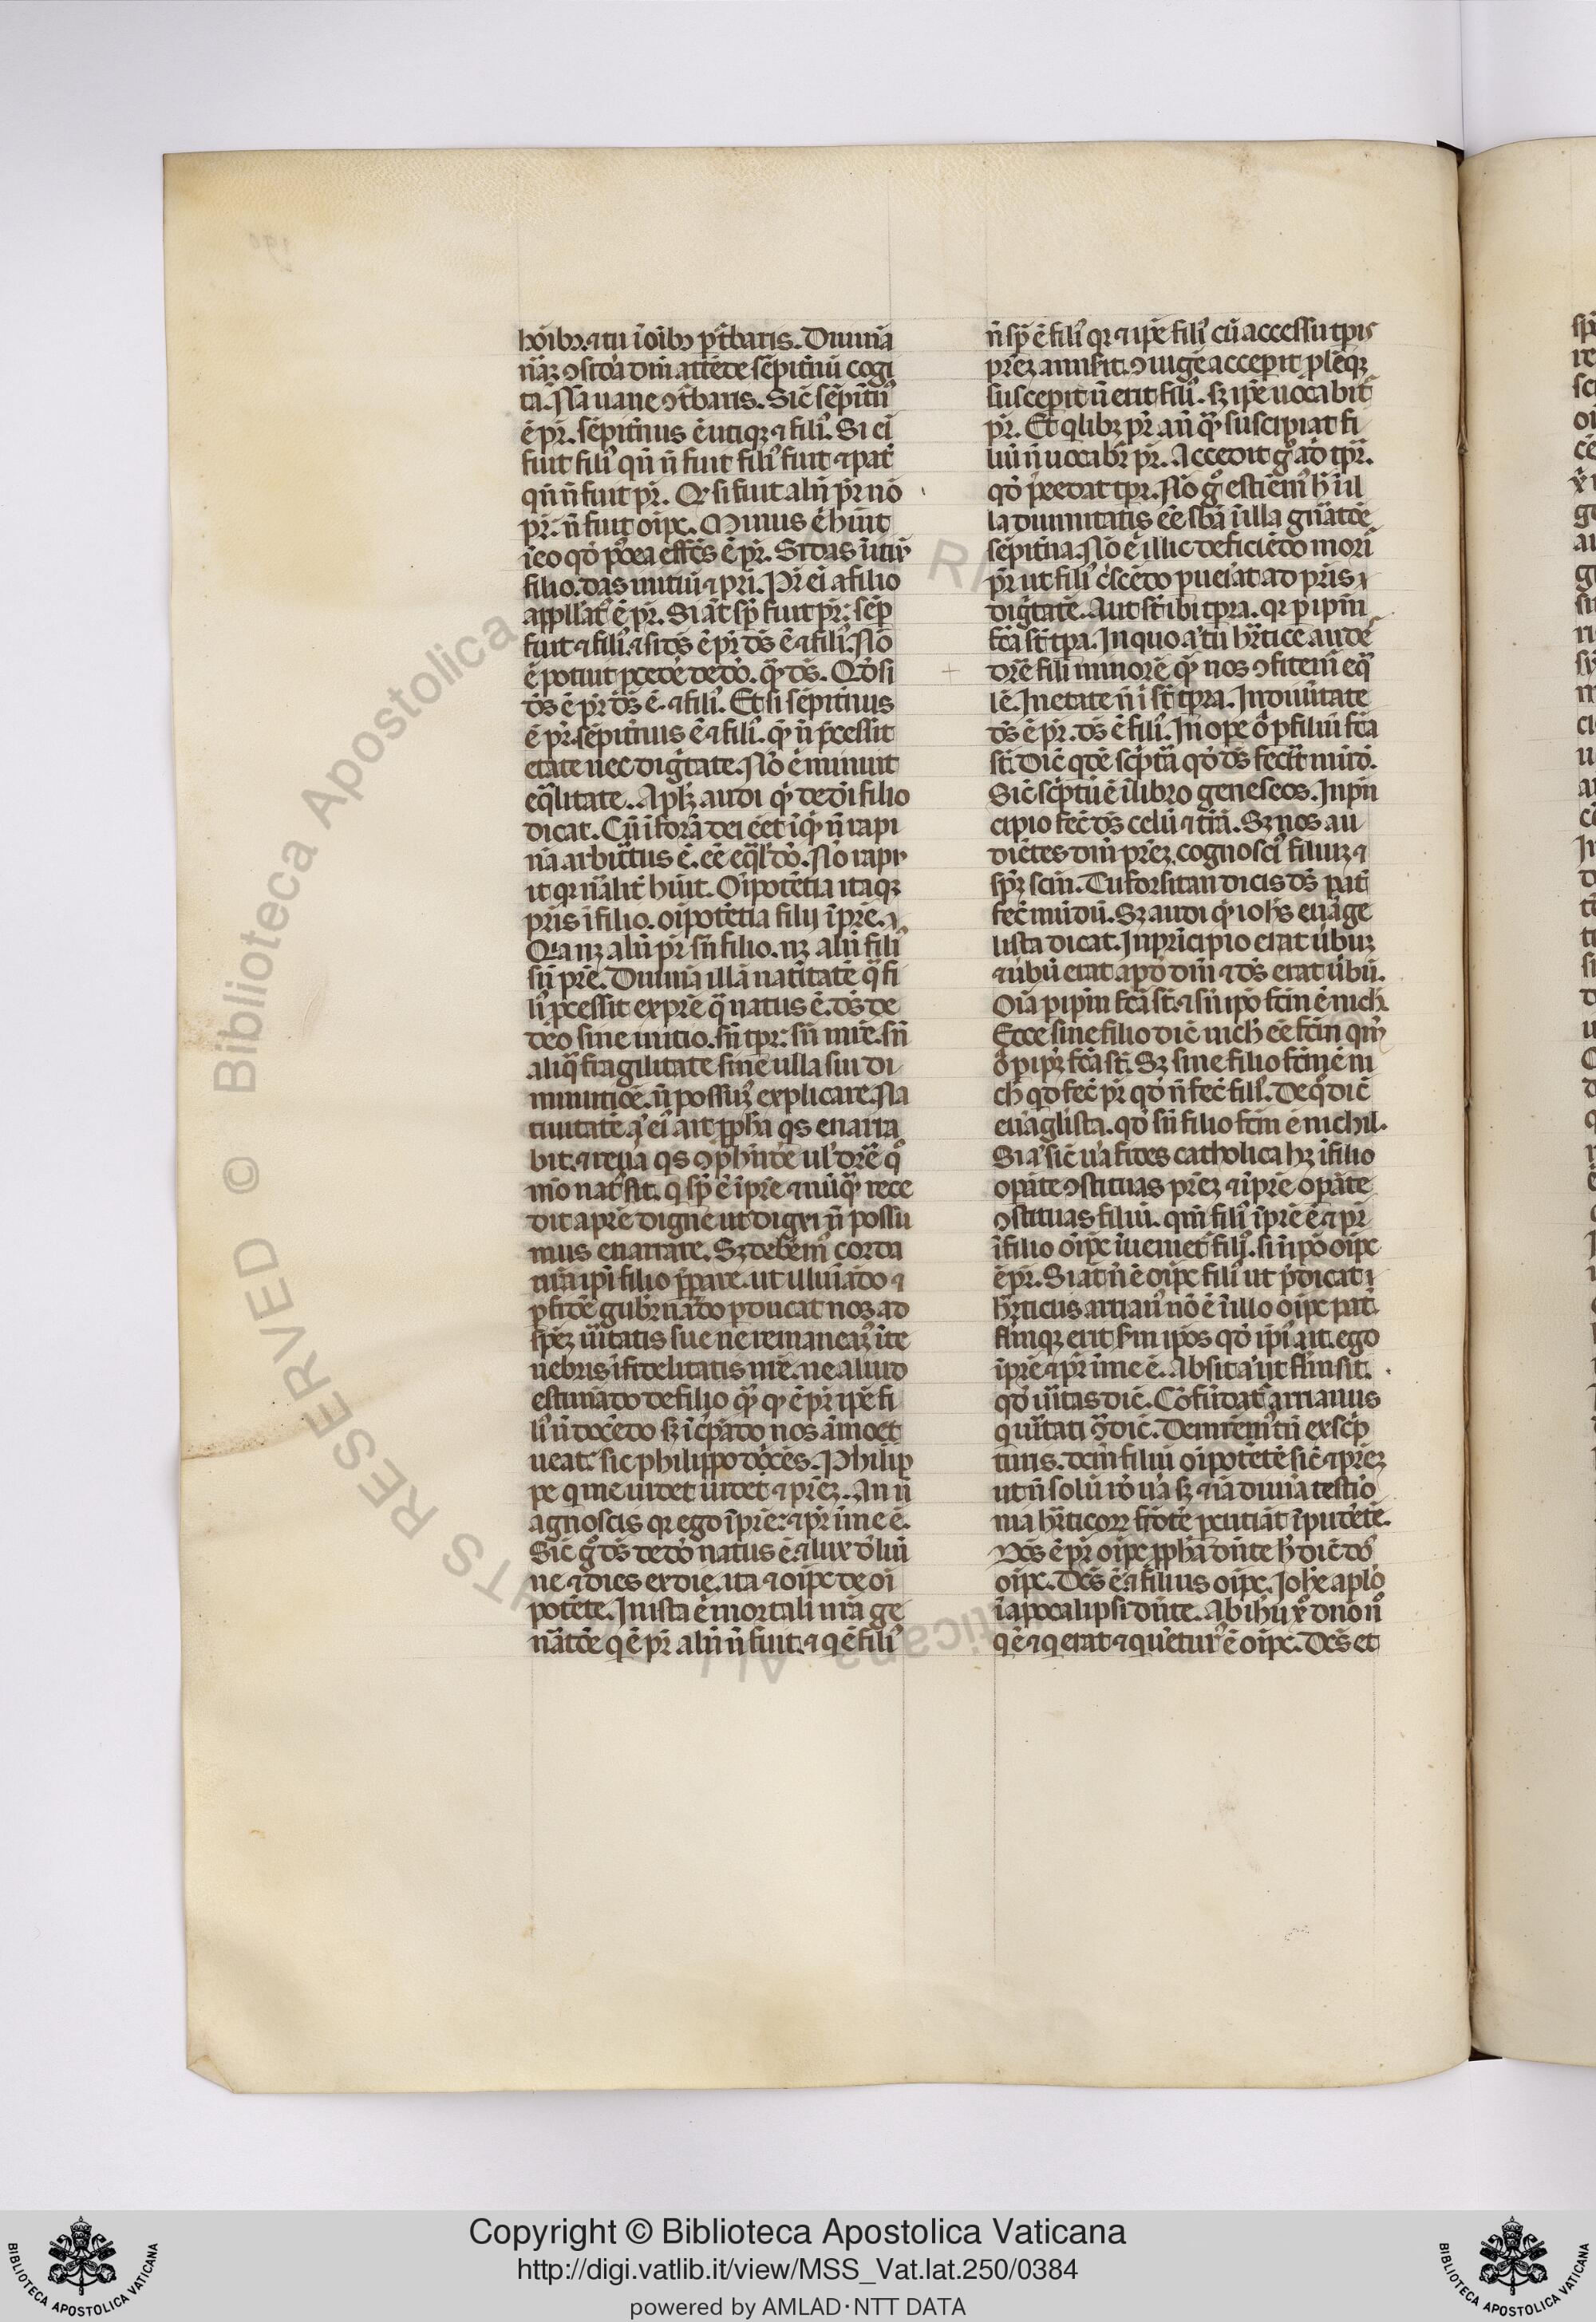 hoibꝫ. ⁊ tu ī oībꝫ ꝑt̄baris. Diuinā
nāꝫ ꝯsidā dn̄i attēde sēpit̄nū cogi
ta. Nā uane ꝯt̄baris. Sic̄ sēpit̄n᷒
ē pr̄. sēpit̄nus ē utiqꝫ ⁊ fili᷒. Si ei
fuit fili᷒ qn̄ n̄ fuit fili᷒ fuit ⁊ pat̄
qn̄ n̄ fuit pr̄. Qr̄ si fuit aliqn̄ pr̄ nō
pr̄. n̄ fuit oīpc̄.
īeo qd̄ postea efftc̄s ē pr̄. Si das initiū
filio. das initiū ⁊ pr̄i. Pr̄ ei a filio
appllat᷒ ē pr̄. Si at̄ sp̄ fuit pr̄: sēp
fuit ⁊ fili᷒. ⁊ si ds̄ ē pr̄ ds̄ ē ⁊ fili᷒. Nō
ē potuit ꝓcedē de dō. qm̄ ds̄. Qd̄ si
ds̄ ē pr̄ ds̄ ē. ⁊ fili᷒. Et si sēpit̄nus
ē pr̄. sēpit̄nus ē ⁊ fili᷒. qm̄ n̄ p̄cessit
etate nec diḡtate. Nō ē minuit
eq̄litate. Aplꝫ audi qm̄ de dī filio
dicat. Cū ī forā dei eet īqm̄ n̄ rapi
nā arbit̄tus ē. ee eq̄l dō. Nō rapu
it qr̄ nālit̄ hūit. Oīpotētia itaqꝫ
pr̄is ī filio. oīpotētia filij ī pr̄e.
Qr̄ a nꝫ aliqn̄ pr̄ sn̄ filio. nꝫ aliqn̄ fili᷒
sn̄ pr̄e. Diuinā illā natiitatē q̄ fi
li᷒ ꝓcessit ex pr̄e q̄ natus ē. ds̄ de
deo sine initio. sn̄ tpr̄: sn̄ mr̄e. sn̄
aliq̄ fragilitate sine ulla sui di
minutiōe. n̄ possum᷒ explicare. Na
tiuitatē a᷒ ei᷒ ait ꝓph̄a qs enarra
bit. ⁊ reuā qs ꝯp̄hndē ul᷒ dr̄e qͦ
mō nat᷒ sit. q sp̄ ē ī pr̄e ⁊ nūqm̄ rece
dit a pr̄e digne ut dixi n̄ possu
mus enarrare. Sꝫ debem᷒ corda
nr̄a ip̄i filio p̄pare. ut illuīado ⁊
ꝑ fidē gub̄nādo ꝑducat nos ad
spēꝫ uītatis sue ne remaneam᷒ ī te
nebris īfidelitatis nr̄e. ne aliud
estimādo de filio qm̄ qd ē pr̄ ipē fi
li᷒ n̄ docēdo sꝫ īc̄pādo nos āmoet
ueat. sic philippo dicēs. Philip
pe q me uidet uidet ⁊ pr̄eꝫ. An n̄
agnoscis qr̄ ego ī pr̄e: ⁊ pr̄ ī me ē.
Sic g᷒ ds̄ de dō natus ē. ⁊ lux d̄ lui
ne ⁊ dies ex die. ita ⁊ oīpc̄ de oī
potēte. In ista ē mortali nr̄a ge
nātōe q ē pr̄ aliqn̄ n̄ fuit. ⁊ q ē fili᷒
n̄ sp̄ ē fili᷒ qr̄ ⁊ ipē fili᷒ cū accessu tpr̄is
pr̄eꝫ āmisit. ꝯiugē accepit ꝓlēqꝫ
suscepit n̄ erit fili᷒. sꝫ ipē uocabit᷒
pr̄. Et qlibꝫ pr̄ an̄ qm̄ suscipiat fi
liū n̄ uocabr̄ pr̄. Accedit g᷒ ad tpr̄.
qd̄ p̄cedat tpr̄. Nō g᷒ estiem᷒ h̄ īil
la diuinitatis ee sbā ī illa gn̄atōe
sēpit̄na. Nō ē illic deficiēdo mori᷒
pr̄ ut fili᷒ c̄scēdo ꝑueiat ad pr̄is
diḡtatē. Aut st̄ ibi tpr̄a. qr̄ ꝑ ipm̄
fc̄a st̄ tpr̄a. In quo a᷒ tu hr̄tice aude
dr̄e fili᷒ minorē qm̄ nos ꝯfitem᷒ eq̄
lē. In etate n̄ ī st̄ tpr̄a. In diuītate
ds̄ ē pr̄. ds̄ ē fili᷒. In ope oī ꝑ filiū fc̄a
st̄. Dic̄ qdē sc̄ptā qd̄ ds̄ fecit mūd.
Sic sc̄ptū ē ī libro geneseos. In prin
cipio fec̄ ds̄ celū ⁊ t̄rā. Sꝫ nos au
diētes dm̄ pr̄eꝫ. cognosci᷒ filiuꝫ ⁊
sp̄ꝫ scm̄. Tu forsitan dicis ds̄ pat̄
fec̄ mūdū. Sꝫ audi qd ioh̄s euāge
lista dicat. In prīcipio erat ūbuꝫ
⁊ ūbū erat apd dm̄ ⁊ ds̄ erat ūbū.
Oīa ꝑ ipm̄ fc̄a st̄. ⁊ sn̄ ipō fcm̄ ē nich̄.
Ecce sine filio dic̄ nich̄ ee fcm̄ qm̄
oīa ꝑ ipꝫ fc̄a st̄. Sꝫ sine filio fcm̄ ē ni
ch̄ qd fec̄ pr̄ qd n̄ fec̄ fili᷒. De qͦ dic̄
euāglista. qd̄ sn̄ filio fcm̄ ē nichil.
Si a᷒ sic̄ uā fides catholica hꝫ ī filio
oparte ꝯstituas pr̄eꝫ ⁊ ī pr̄e opāte
ꝯstituas filiū. qm̄ fili᷒ ī pr̄e ē ⁊ pr̄
ī filio oīpc̄ īueniet᷒ fili᷒. si n̄ pō oīpc̄
ē pr̄. Si at̄ n̄ ē oīpc̄ fili᷒ ut p̄dicat᷒
hr̄ticus arrian᷒ nō ē ī illo oīpc̄ pat̄.
flīmqꝫ erit scm̄ ipos qd̄ ipī᷒ ait. ego
ī pr̄e ⁊ pr̄ ī me ē. Absit a᷒ ut flīm sit.
qd uītas dic̄. Cōfūdat᷒ arrianus
q uītati ꝯdic̄. Demr̄em᷒ tn̄ ex sc̄p
turis. dcm̄ filiū oīpotētē sic̄ ⁊ pr̄eꝫ
ut n̄ solū rō uā sꝫ ⁊iā diuīa testīo
nia hr̄ticorꝝ frōtē ꝑcutiāt īpudētē.
Ds̄ ē pr̄ oīpc̄ ꝓph̄a dn̄te h̄ dic̄ ds̄
oīpc̄. Ds̄ ē ⁊ filius oīpc̄. Joh̄e aplō
ī apocalipsi dn̄te. Ab ihū xp̄ dn̄o nr̄o
q ē ⁊ q erat ⁊ q uētur᷒ ē oīpc̄. Ds̄ et
Copyright © Biblioteca Apostolica Vaticana
http://digi.vatlib.it/view/MSS_Vat.lat.250/0384
powered by AMLAD·NTT DATA